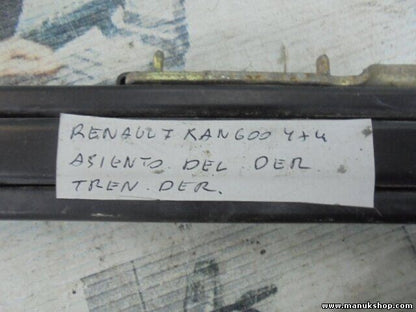 RENAULT KANGOO 4X4
ASIENTO DEL DER
TREN. DER.
www.manukshop.com